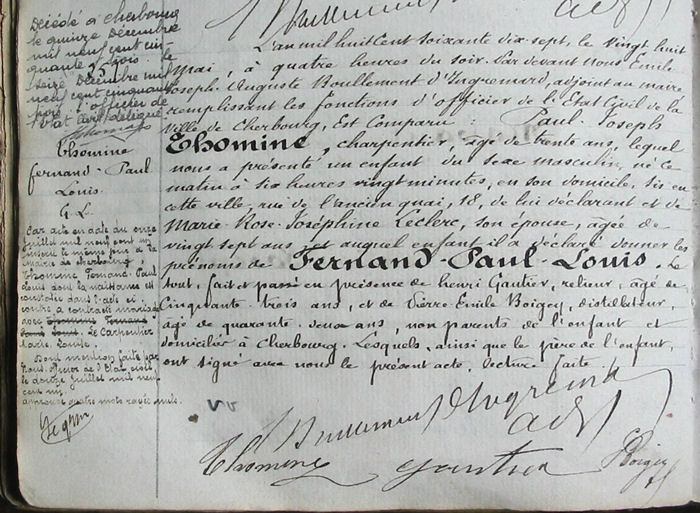 Décédé à Cherbourg
le quinze Décembre
mil neuf cent cin
quante trois. le
seize Décembre mil
neuf cent cinquante
trois l'officier de
l'Etat civil délégué
Thomine
fernand-Paul
Louis.
G. L.
Par acte en date du onze
juillet mil neuf cent un
inscrit le même jour à la
Mairie de Cherbourg
Thomine Fernand-Paul
Louis dont la naissance est
constatée dans l'acte ci
contre a contracté mariage
avec
Le Carpentier
Marie
Dont mention faite par
Nous officier de l'Etat civil
le douze juillet mil neuf
cent un
approuvé quatre mots rayés nuls.
L'an mil huit cent soixante dix-sept, le vingt huit
Mai, à quatre heures du soir. Par devant Nous Emile
Joseph-Auguste Roullement d'Ingremard, adjoint au maire
remplissant les fonctions d'officier de l'Etat Civil de la
Ville de Cherbourg, Est Comparu : Paul-Joseph
Thomine, charpentier, âgé de trente ans, lequel
nous a présenté un enfant du sexe masculin, né ce
matin à six heures vingt minutes, en son domicile, sis en
cette ville, rue de l'ancien quai, 18, de lui déclarant et de
Marie-Rose-Joséphine Leclerc, son épouse, âgée de
vingt sept ans, et auquel enfant il a déclaré donner les
prénoms de Fernand-Paul-Louis. Le
tout, fait et passé en présence de henri Gautier, relieur, âgé de
Cinquante-trois ans, et de Pierre-Emile Boigey, distillateur,
âgé de quarante-deux ans, non parents de l'enfant et
domiciliés à Cherbourg. Lesquels, ainsi que le père de l'enfant,
ont signé avec nous le présent acte, lecture faite.
adj
Thomine gautier Boigey